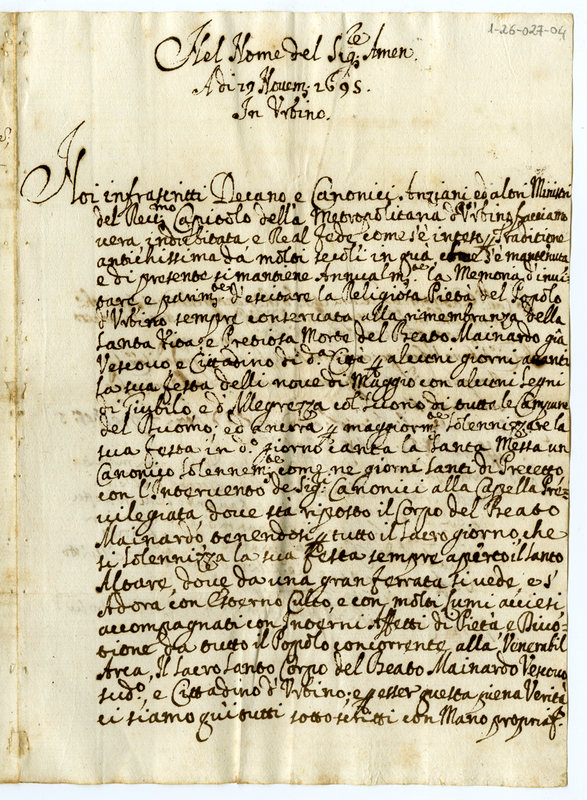 1-26-027-04
Nel Nome del Sig:re Amen.
A di 29 Novem: 1695.
In Urbino.
Noi infrascritti Decano, e Canonici Anziani ed altri Ministri
del Rev:mo Capitolo della Metropolitana d'Urbino facciamo
vera, indubitata, e Real fede, come s'è inteso p Traditione
antichissima da molti secoli in qua, s'è mantenuta
e di presente si mantiene Annualm:te la Memoria d'invi-
tare, e parim:te d'escitare la Religiosa Pietà del Popolo
d'Urbino sempre conservata alla rimembranza della
Santa Vita, e Pretiosa Morte del Beato Mainardo già
Vescovo, e Cittadino di d:a Città p alcuni giorni avanti
la sua festa delli nove di Maggio con alcuni Segni
di Giubilo, e d'Allegrezza col Suono di tutte le Campane
del Duomo; ed ancora p maggiorm:te Solennizzare la
sua festa in d:o giorno canta la Santa Messa un
Canonico Solennem:te come ne giorni Santi di Precetto
con l'Intervento de Sig:ri Canonici alla Capella Pre-
vilegiata, dove sta riposto il Corpo del Beato
Mainardo, tenendosi p tutto il Sacro giorno, che
si Solennizza la sua Festa sempre aperto il Santo
Altare, dove da una gran ferrata si vede, e s'
Adora con Esterno Culto, e con molti lumi accesi
accompagnati con Interni Affetti di Pietà, e Divo-
tione da tutto il Popolo concorrente, alla Venerabil
Arca, Il Sacro Santo Corpo del Beato Mainardo Vescovo
sud:o, e Cittadino d'Urbino; e p esser questa piena Verità
ci siamo qui tutti sottoscritti con Mano propria.